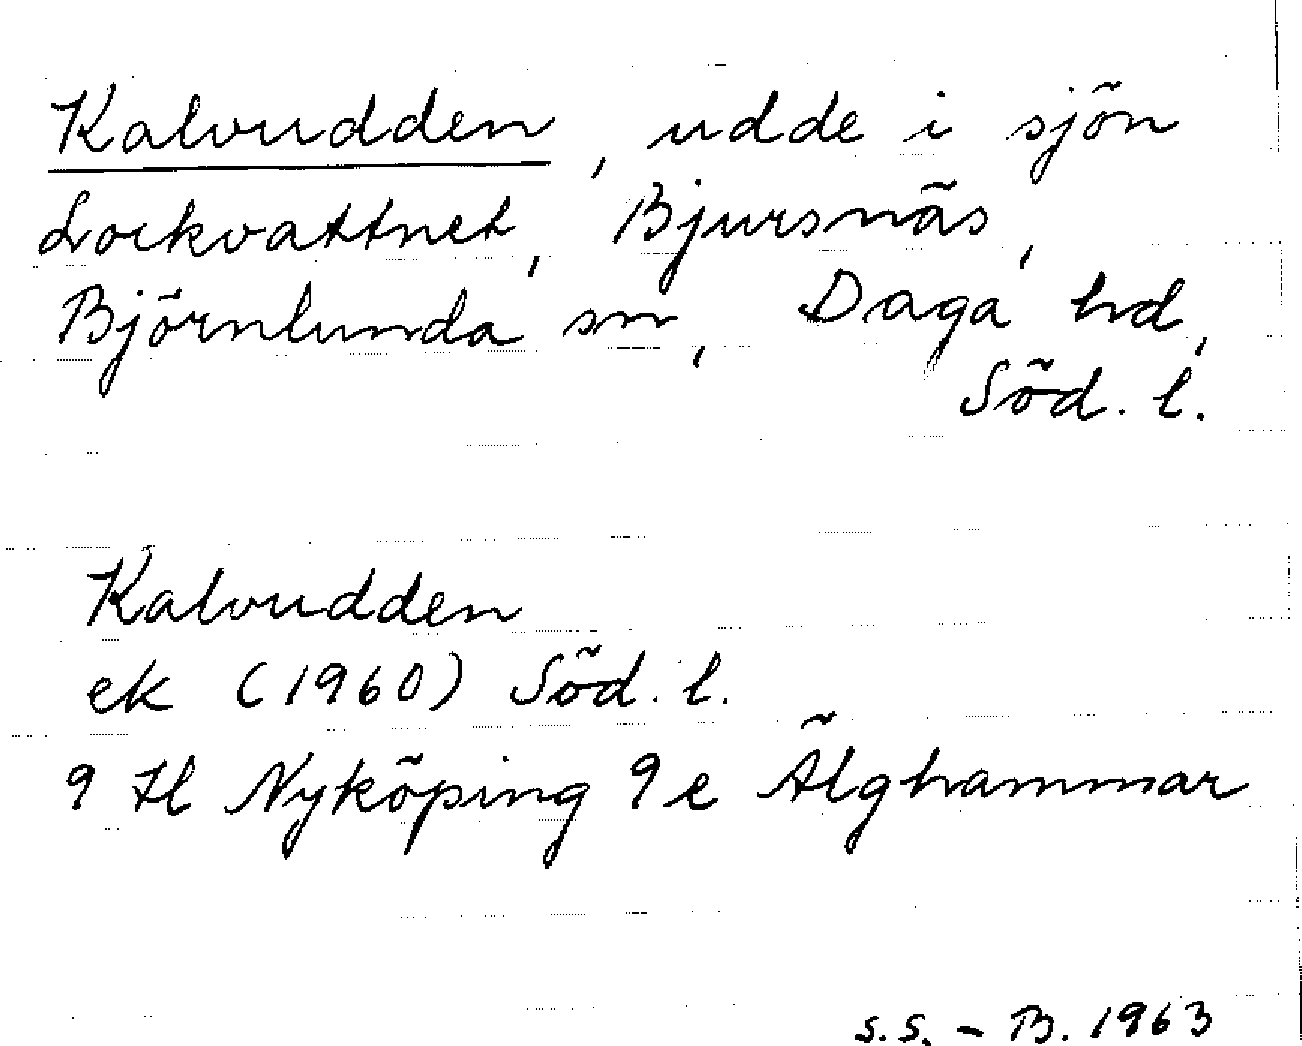 Kalvudden, udde i sjön
Lockvattnet, Bjursnäs,
Björnlunda sn, Daga hd,
Söd. l.
Kalvudden
ek (1960) Söd. l.
9 H Nyköping 9 e Älghammar
s.s. - B. 1963